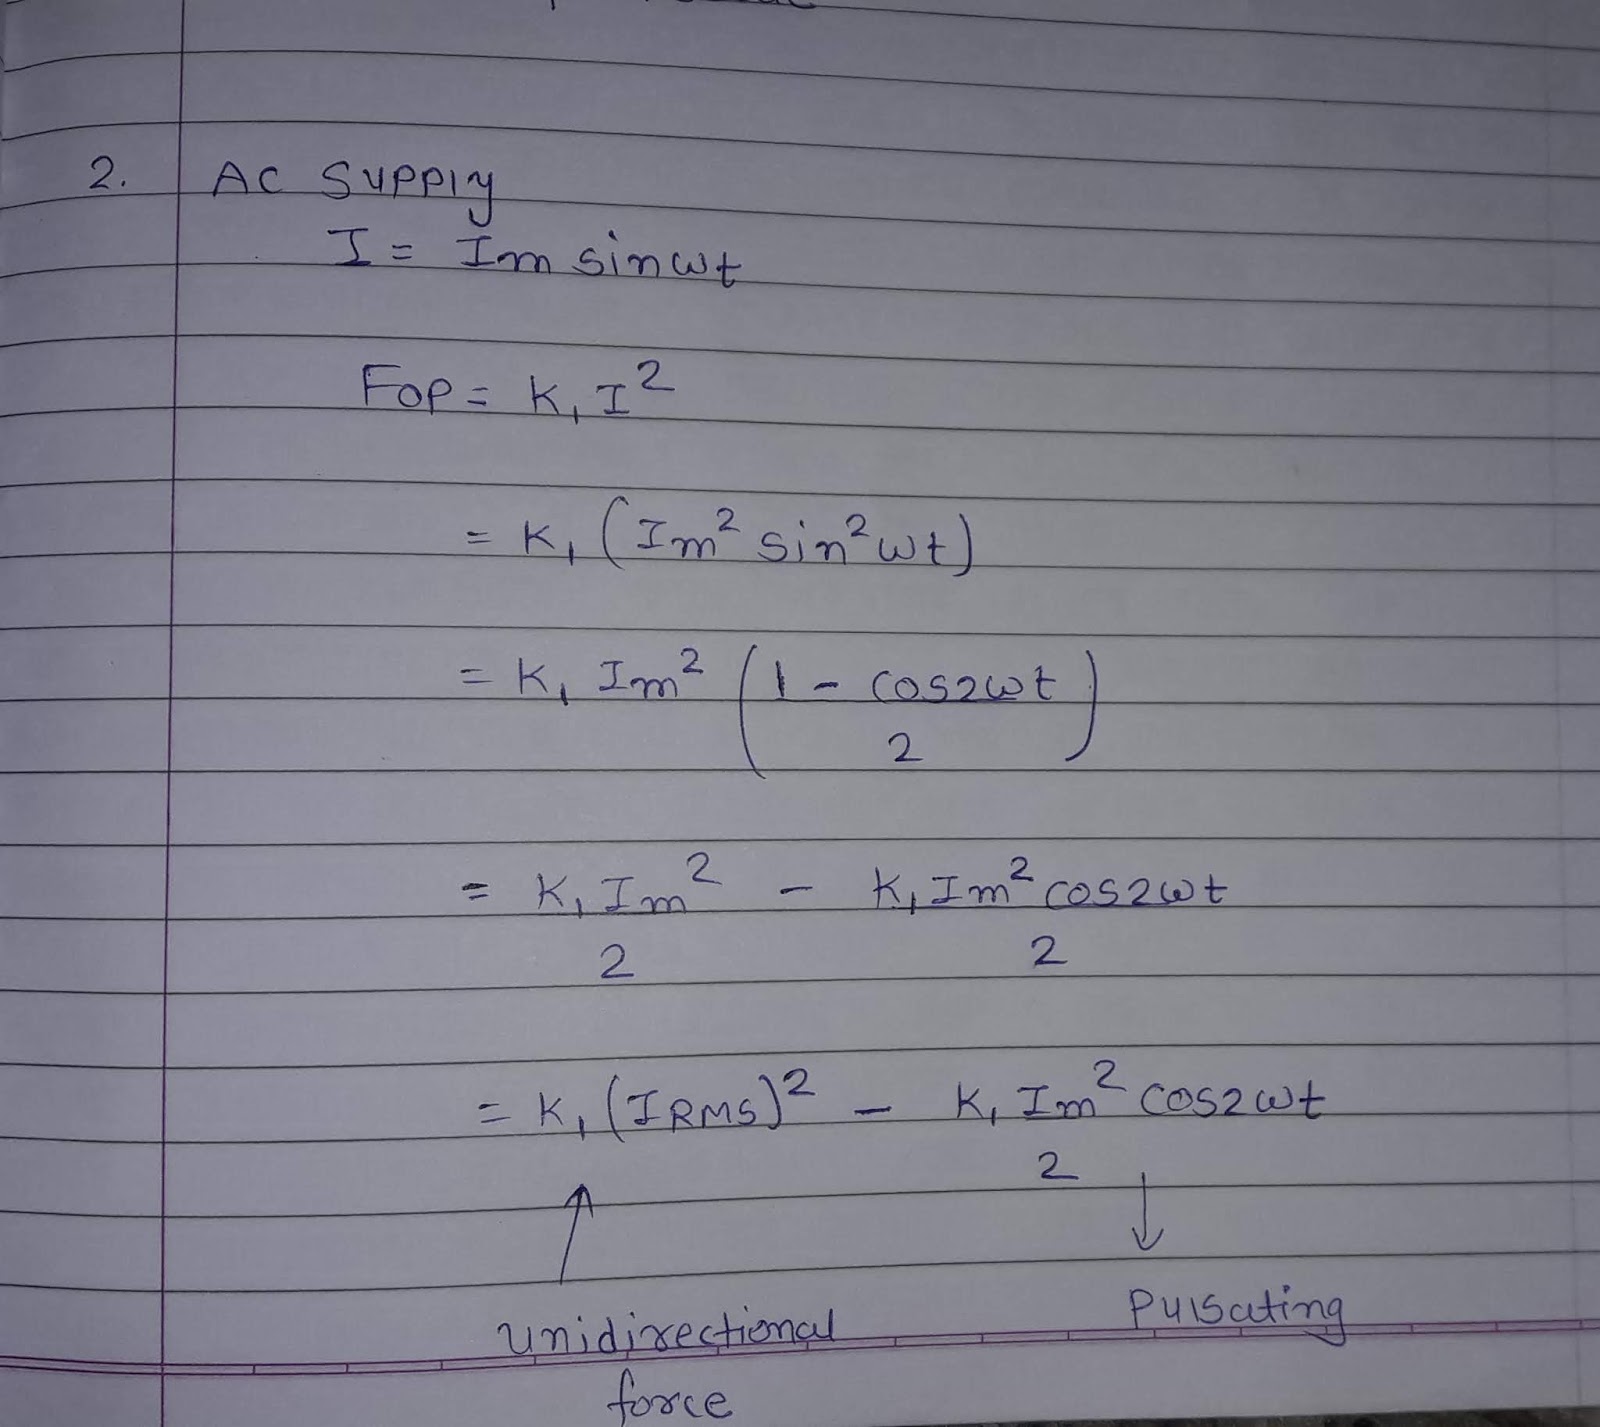 2. AC Supply
I = Im sinωt
Fop = K₁ I²
= K₁ (Im² sin²ωt)
= K₁ Im² (1 - cos2ωt / 2)
= K₁ Im² / 2 - K₁ Im² cos2ωt / 2
= K₁ (IRMS)² - K₁ Im² cos2ωt / 2
↑ ↓
unidirectional Pulsating
force